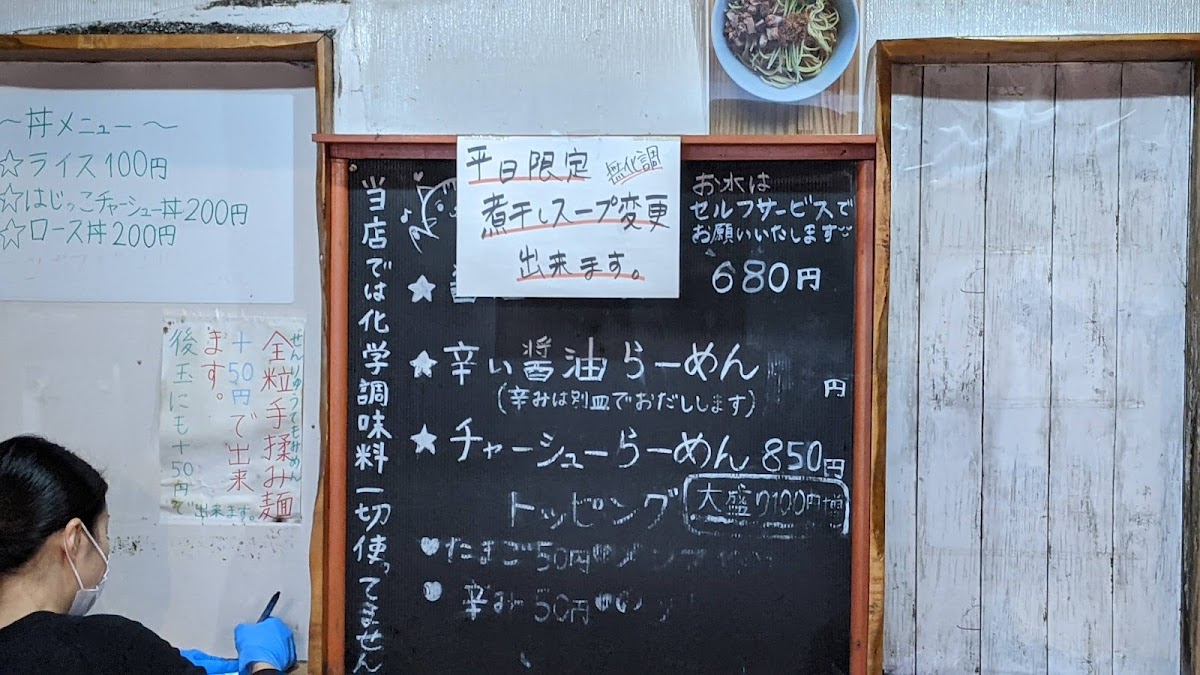 〜丼メニュー〜
☆ライス100円
☆はじっこチャーシュー丼200円
☆ロース丼200円
せんりゅうてもみめん
全粒手揉み麺
+50円で出来
ます。
後玉にも+50円で
出来ます。
当店では化学調味料一切使ってません
平日限定 無化調
煮干しスープ変更
出来ます。
お水は
セルフサービスで
お願いいたします
★
680円
★辛い醤油らーめん 円
(辛みは別皿でおだしします)
★チャーシューらーめん 850円
トッピング 大盛り100円増
♥たまご50円♥メンマ
辛み50円♥のり